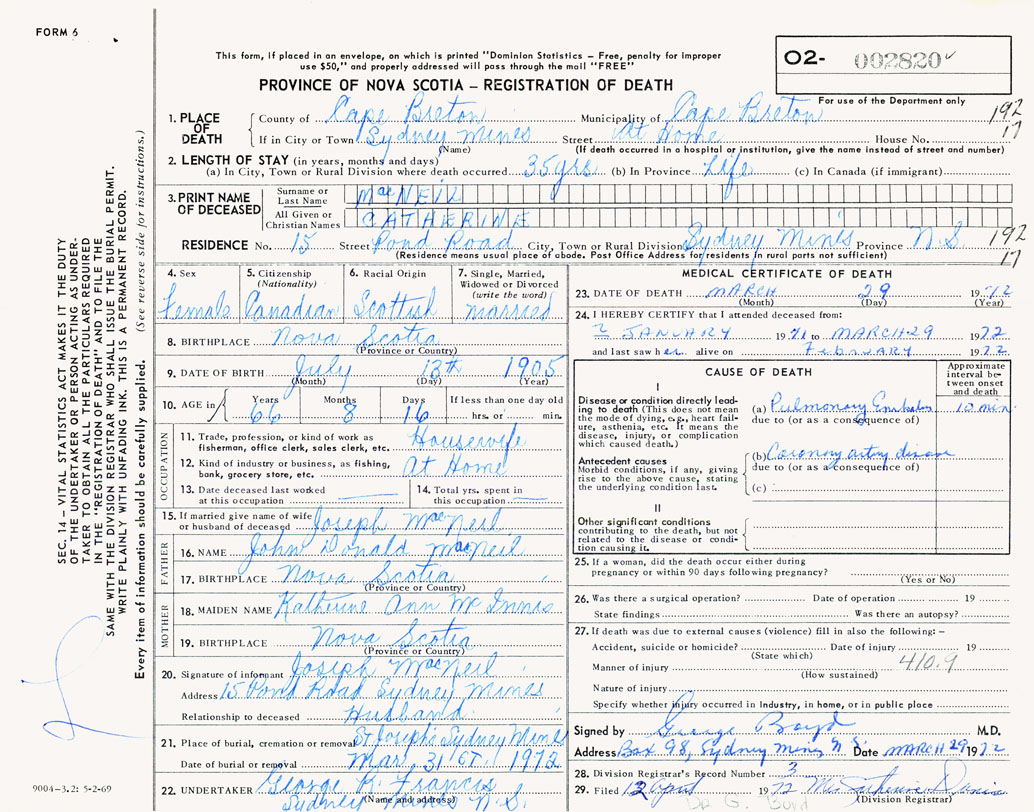 FORM 6
This form, if placed in an envelope, on which is printed "Dominion Statistics – Free, penalty for improper
use $50," and properly addressed will pass through the mail "FREE"
PROVINCE OF NOVA SCOTIA – REGISTRATION OF DEATH
02- 002820
For use of the Department only
1. PLACE OF DEATH County of Cape Breton Municipality of Cape Breton 192
If in City or Town Sydney Mines Street At Home House No. 17
(Name) (If death occurred in a hospital or institution, give the name instead of street and number)
2. LENGTH OF STAY (in years, months and days)
(a) In City, Town or Rural Division where death occurred 35 yrs (b) In Province Life (c) In Canada (if immigrant)
3. PRINT NAME OF DECEASED Surname or Last Name MacNEIL
All Given or Christian Names CATHERINE
RESIDENCE No. 15 Street Pond Road City, Town or Rural Division Sydney Mines Province N.S. 192
(Residence means usual place of abode. Post Office Address for residents in rural parts not sufficient) 17
4. Sex
Female
5. Citizenship
(Nationality)
Canadian
6. Racial Origin
Scottish
7. Single, Married,
Widowed or Divorced
(write the word)
married
8. BIRTHPLACE Nova Scotia
(Province or Country)
9. DATE OF BIRTH July 13th 1905
(Month) (Day) (Year)
10. AGE in Years Months Days If less than one day old
66 8 16 hrs. or min.
OCCUPATION
11. Trade, profession, or kind of work as
fisherman, office clerk, sales clerk, etc. Housewife
12. Kind of industry or business, as fishing,
bank, grocery store, etc. At Home
13. Date deceased last worked
at this occupation
14. Total yrs. spent in
this occupation
15. If married give name of wife
or husband of deceased Joseph MacNeil
FATHER
16. NAME John Donald MacNeil
17. BIRTHPLACE Nova Scotia
(Province or Country)
MOTHER
18. MAIDEN NAME Katherine Ann McInnis
19. BIRTHPLACE Nova Scotia
(Province or Country)
20. Signature of informant Joseph MacNeil
Address 15 Pond Road Sydney Mines
Relationship to deceased Husband
21. Place of burial, cremation or removal St Joseph's Sydney Mines
Date of burial or removal Mar. 31st. 1972
22. UNDERTAKER George K. Francis
Sydney N.S.
(Name and address)
MEDICAL CERTIFICATE OF DEATH
23. DATE OF DEATH MARCH 29 1972
(Month) (Day) (Year)
24. I HEREBY CERTIFY that I attended deceased from:
2 JANUARY 1971 to MARCH 29 1972
and last saw her alive on February 1972
CAUSE OF DEATH
Approximate
interval be-
tween onset
and death
I
Disease or condition directly lead-
ing to death (This does not mean
the mode of dying, e.g., heart fail-
ure, asthenia, etc. It means the
disease, injury, or complication
which caused death.)
(a) Pulmonary Embolus 10 min.
due to (or as a consequence of)
Antecedent causes
Morbid conditions, if any, giving
rise to the above cause, stating
the underlying condition last.
(b) Coronary artery disease
due to (or as a consequence of)
(c)
II
Other significant conditions
contributing to the death, but not
related to the disease or condi-
tion causing it.
25. If a woman, did the death occur either during
pregnancy or within 90 days following pregnancy?
(Yes or No)
26. Was there a surgical operation? Date of operation 19
State findings Was there an autopsy?
27. If death was due to external causes (violence) fill in also the following: –
Accident, suicide or homicide? Date of injury 19
(State which) 410.9
Manner of injury
(How sustained)
Nature of injury
Specify whether injury occurred in Industry, in home, or in public place
Signed by George Boyd M.D.
Address Box 98, Sydney Mines N.S. Date MARCH 29 1972
28. Division Registrar's Record Number 3
29. Filed 12 April 1972 Mrs Catherine
(Division Registrar)
Dr G. Boyd
SEC. 14 – VITAL STATISTICS ACT MAKES IT THE DUTY
OF THE UNDERTAKER OR PERSON ACTING AS UNDER-
TAKER TO OBTAIN ALL THE PARTICULARS REQUIRED
IN THE "REGISTRATION OF DEATH" AND TO FILE THE
SAME WITH THE DIVISION REGISTRAR WHO SHALL ISSUE THE BURIAL PERMIT.
WRITE PLAINLY WITH UNFADING INK. THIS IS A PERMANENT RECORD.
Every item of information should be carefully supplied. (See reverse side for instructions.)
9004-3.2: 5-2-69